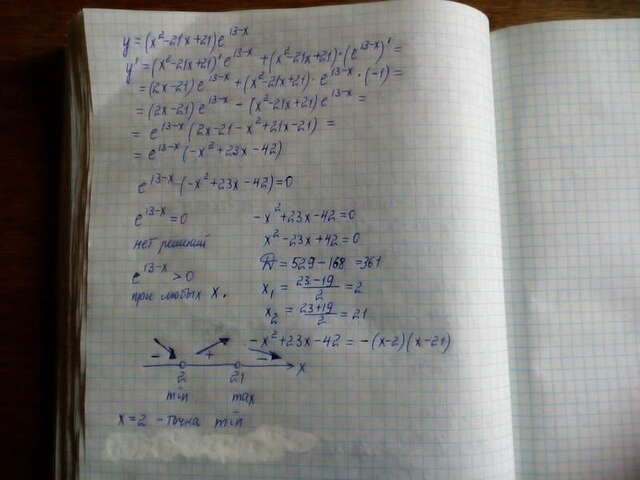 y = (x²-21x+21)e^13-x
y' = (x²-21x+21)' e^13-x + (x²-21x+21)·(e^13-x)' =
= (2x-21)e^13-x + (x²-21x+21)·e^13-x·(-1) =
= (2x-21)e^13-x - (x²-21x+21)e^13-x =
= e^13-x (2x-21-x²+21x-21) =
= e^13-x (-x²+23x-42)
e^13-x (-x²+23x-42)=0
e^13-x = 0
нет решений
e^13-x > 0
при любых x.
-x²+23x-42=0
x²-23x+42=0
D = 529-168 = 361
x₁ = (23-19)/2 = 2
x₂ = (23+19)/2 = 21
-x²+23x-42 = -(x-2)(x-21)
- + -
2 21 x
min max
x=2 - точка min